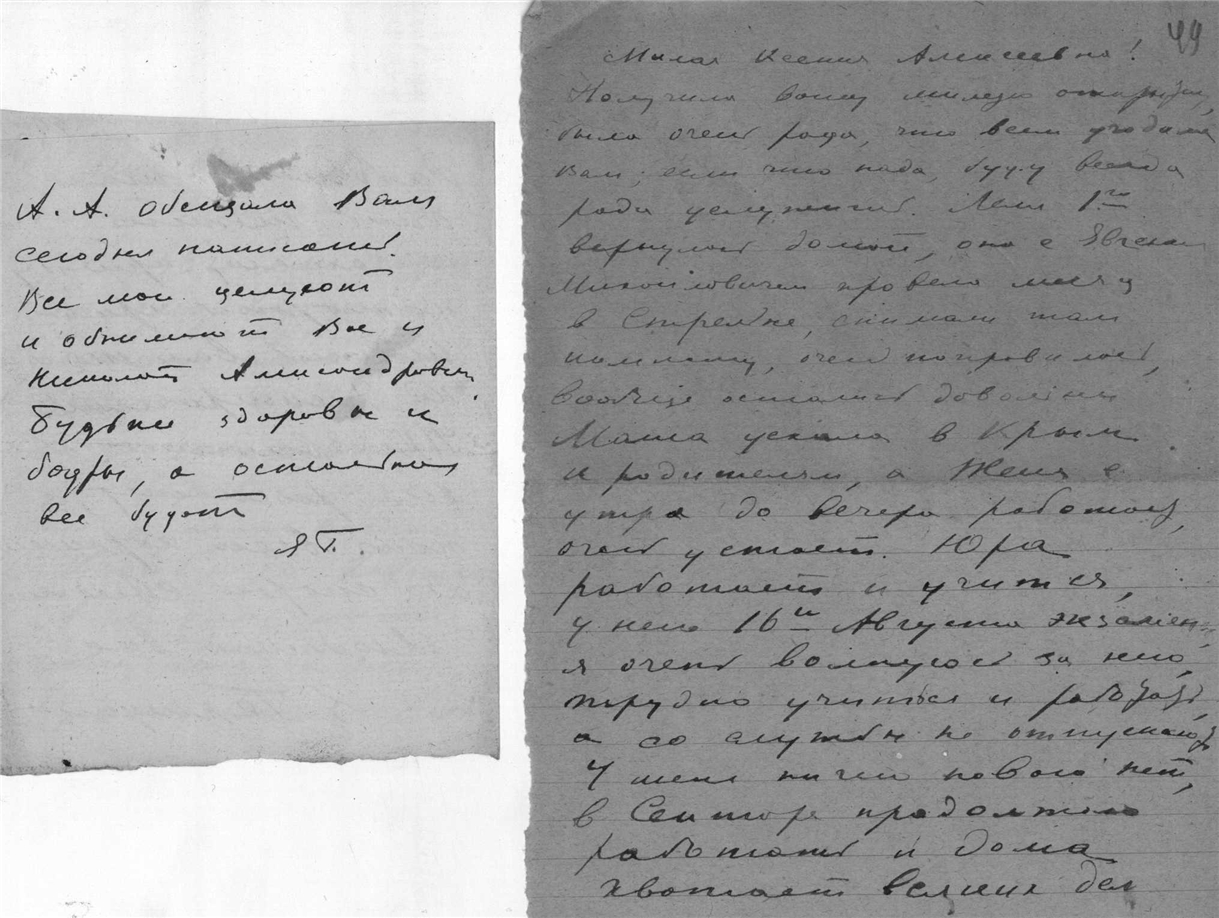 А. А. обещала Вам
сегодня написать.
Все мои целуют
и обнимают Вас и
Николай Александрович.
Будьте здоровы и
бодры, а остальное
все будет
ЯП.
49
Милая Ксения Алексеевна!
Получила вашу милую открытку,
была очень рада, что всем угодила
Вам, если что надо, буду всегда
рада услужить. Леля 1го
вернулась домой, она с Евгением
Михайловичем провела месяц
в Стрельне, снимали там
комнату, очень поправилась,
вообще остались довольны
Маша уехала в Крым
к родителям, а Женя с
утра до вечера работает,
очень устает. Юра
работает и учится,
у него 16го Августа экзамены
я очень волнуюсь за него,
трудно учиться и работать
а со службы не отпускают.
У меня ничего нового нет,
в Секторе продолжаю
работать и дома
хватает всяких дел